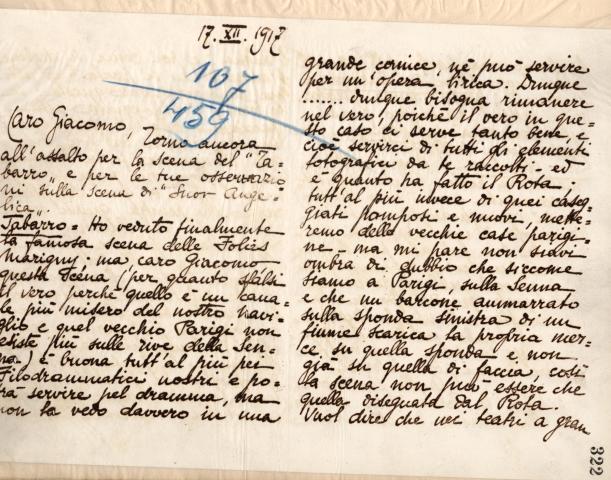 17. XII. 1917
107
459
Caro Giacomo, Torno ancora
all'assalto per la scena del "Ta=
barro" e per le tue osservazio
ni sulla scena di "Suor Ange=
lica".
Tabarro = Ho veduto finalmente
la famosa scena delle Folies
Marigny: ma, caro Giacomo
questa scena (per quanto sfalsi
il vero perchè quello è un cana=
le più misero del nostro navi=
glio e quel vecchio Parigi non
esiste più sulle rive della Sen=
na.) è buona tutt'al più pei
Filodrammatici nostri e po=
trà servire pel dramma, ma
non la vedo davvero in una
grande cornice, nè può servire
per un'opera lirica. Dunque
....... dunque bisogna rimanere
nel vero, poichè il vero in que=
sto caso ci serve tanto bene, e
cioè servirci di tutti gli elementi
fotografici da te raccolti - ed
è quanto ha fatto il Rota;
tutt'al più invece di quei caseg=
giati pomposi e nuovi, mette=
remo delle vecchie case parigi=
ne - ma mi pare non siavi
ombra di dubbio che siccome
siamo a Parigi, sulla Senna
e che un barcone ammarrato
sulla sponda sinistra di un
fiume scarica la propria mer=
ce su quella sponda e non
già su quella di faccia, così
la scena non può essere che
quella disegnata dal Rota.
Vuol dire che nei teatri a gran
322